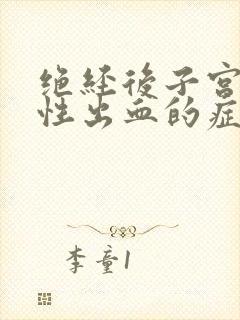 绝经後子宫
性出血的症
李童1